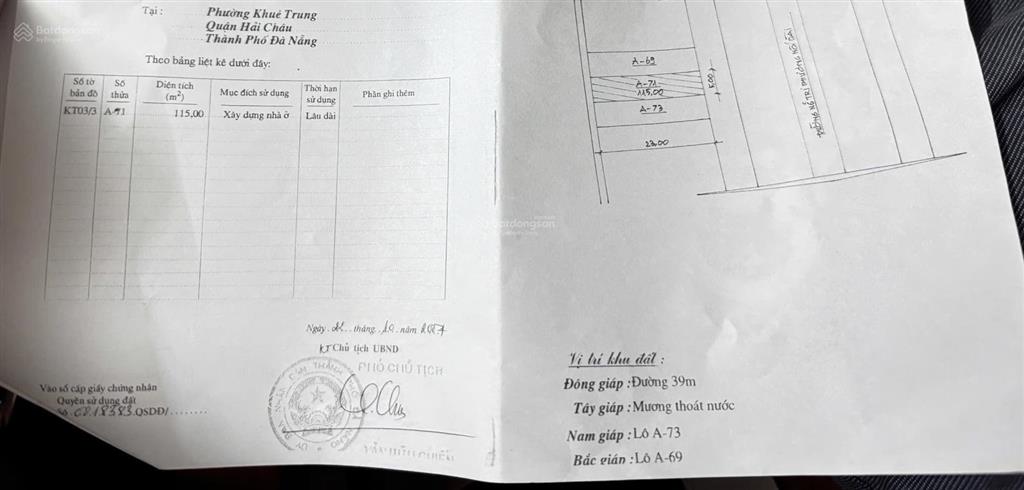 Batdongsan
Tại :
Phường Khuê Trung
Quận Hải Châu
Thành Phố Đà Nẵng
Theo bảng liệt kê dưới đây:
Số tờ bản đồ
Số thửa
Diện tích (m²)
Mục đích sử dụng
Thời hạn sử dụng
Phần ghi thêm
KT03/3
A-71
115,00
Xây dựng nhà ở
Lâu dài
Ngày
tháng 10 năm
KT Chủ tịch UBND
PHÓ CHỦ TỊCH
Vào sổ cấp giấy chứng nhận
Quyền sử dụng đất
Số QSDĐ/........
A-69
A-71
115,00
A-73
23,00
5,00
Batdongsan
Vị trí khu đất :
Đông giáp : Đường 39m
Tây giáp : Mương thoát nước
Nam giáp : Lô A-73
Bắc giáp : Lô A-69